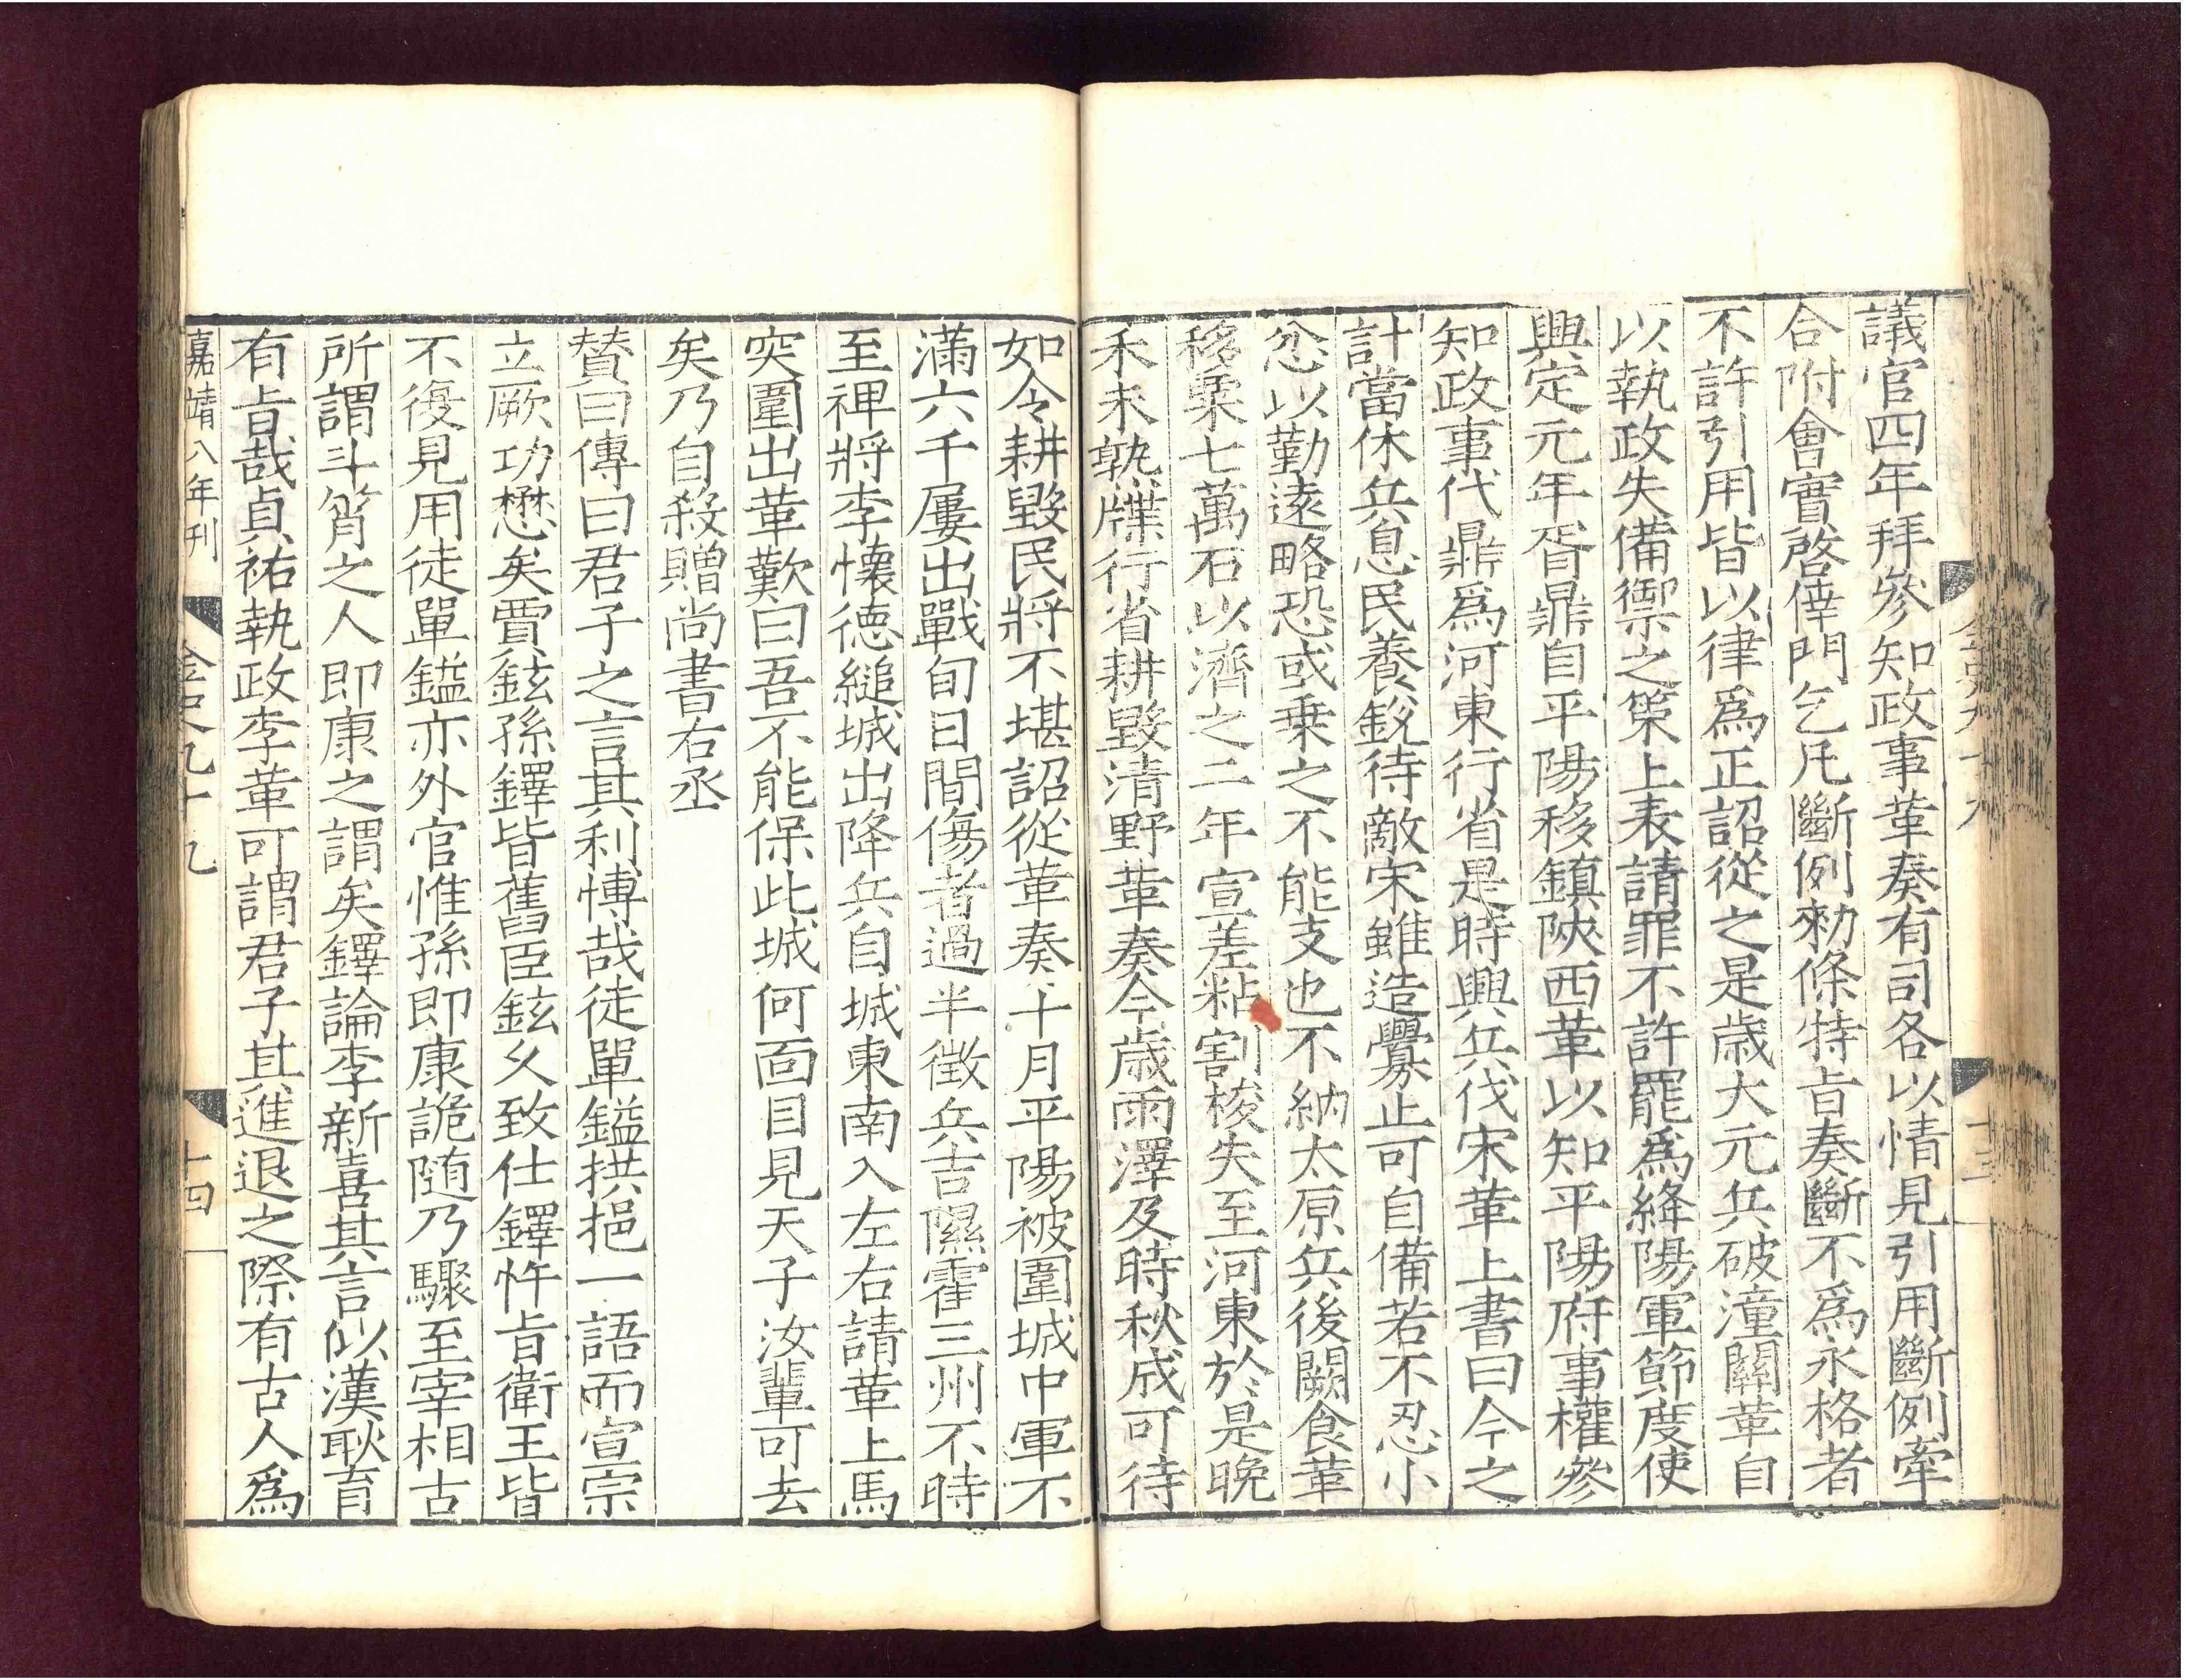 議官四年拜參知政事革奏有司各以情見引用斷例牽
合附會實啓倖門乞凡斷例勑條特旨奏斷不爲永格者
不許引用皆以律爲正詔從之是歲大元兵破潼關革自
以執政失備禦之策上表請罪不許罷爲絳陽軍節度使
興定元年胥鼎自平陽移鎮陝西革以知平陽府事權參
知政事代鼎爲河東行省是時興兵伐宋革上書曰今之
計當休兵息民養銳待敵宋雖造釁止可自備若不忍小
忿以勤遠略恐或乗之不能支也不納太原兵後闕食革
移粟七萬石以濟之二年宣差粘割梭失至河東於是晚
禾未孰牒行省耕毀清野革奏今歲雨澤及時秋成可待
如令耕毀民將不堪詔從革奏十月平陽被圍城中軍不
滿六千屢出戰旬日間傷者過半徵兵吉隰霍三州不時
至裨將李懷德縋城出降兵自城東南入左右請革上馬
突圍出革歎曰吾不能保此城何面目見天子汝輩可去
矣乃自殺贈尚書右丞
贊曰傳曰君子之言其利博哉徒單鎰拱挹一語而宣宗
立厥功懋矣賈鉉孫鐸皆舊臣鉉乆致仕鐸忤旨衛王皆
不復見用徒單鎰亦外官惟孫即康詭随乃驟至宰相古
所謂斗筲之人即康之謂矣鐸論李新喜其言似漢耿育
有旨哉貞祐執政李革可謂君子其進退之際有古人爲
嘉靖八年刊
金史九十九
十四